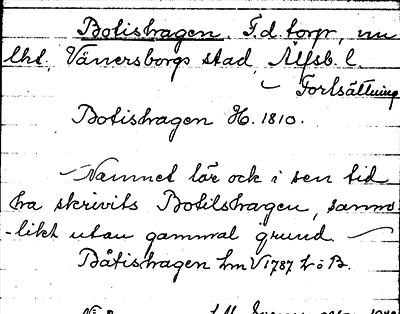 Botishagen. F.d. torp, nu
lht, Vänersborgs stad, Älfsb. l.
— Fortsättning
Botishagen H. 1810.
— Namnet lär ock i sen tid
ha skrivits Botilshagen, sanno
-likt utan gammal grund. —
Båtishagen hm V 1787